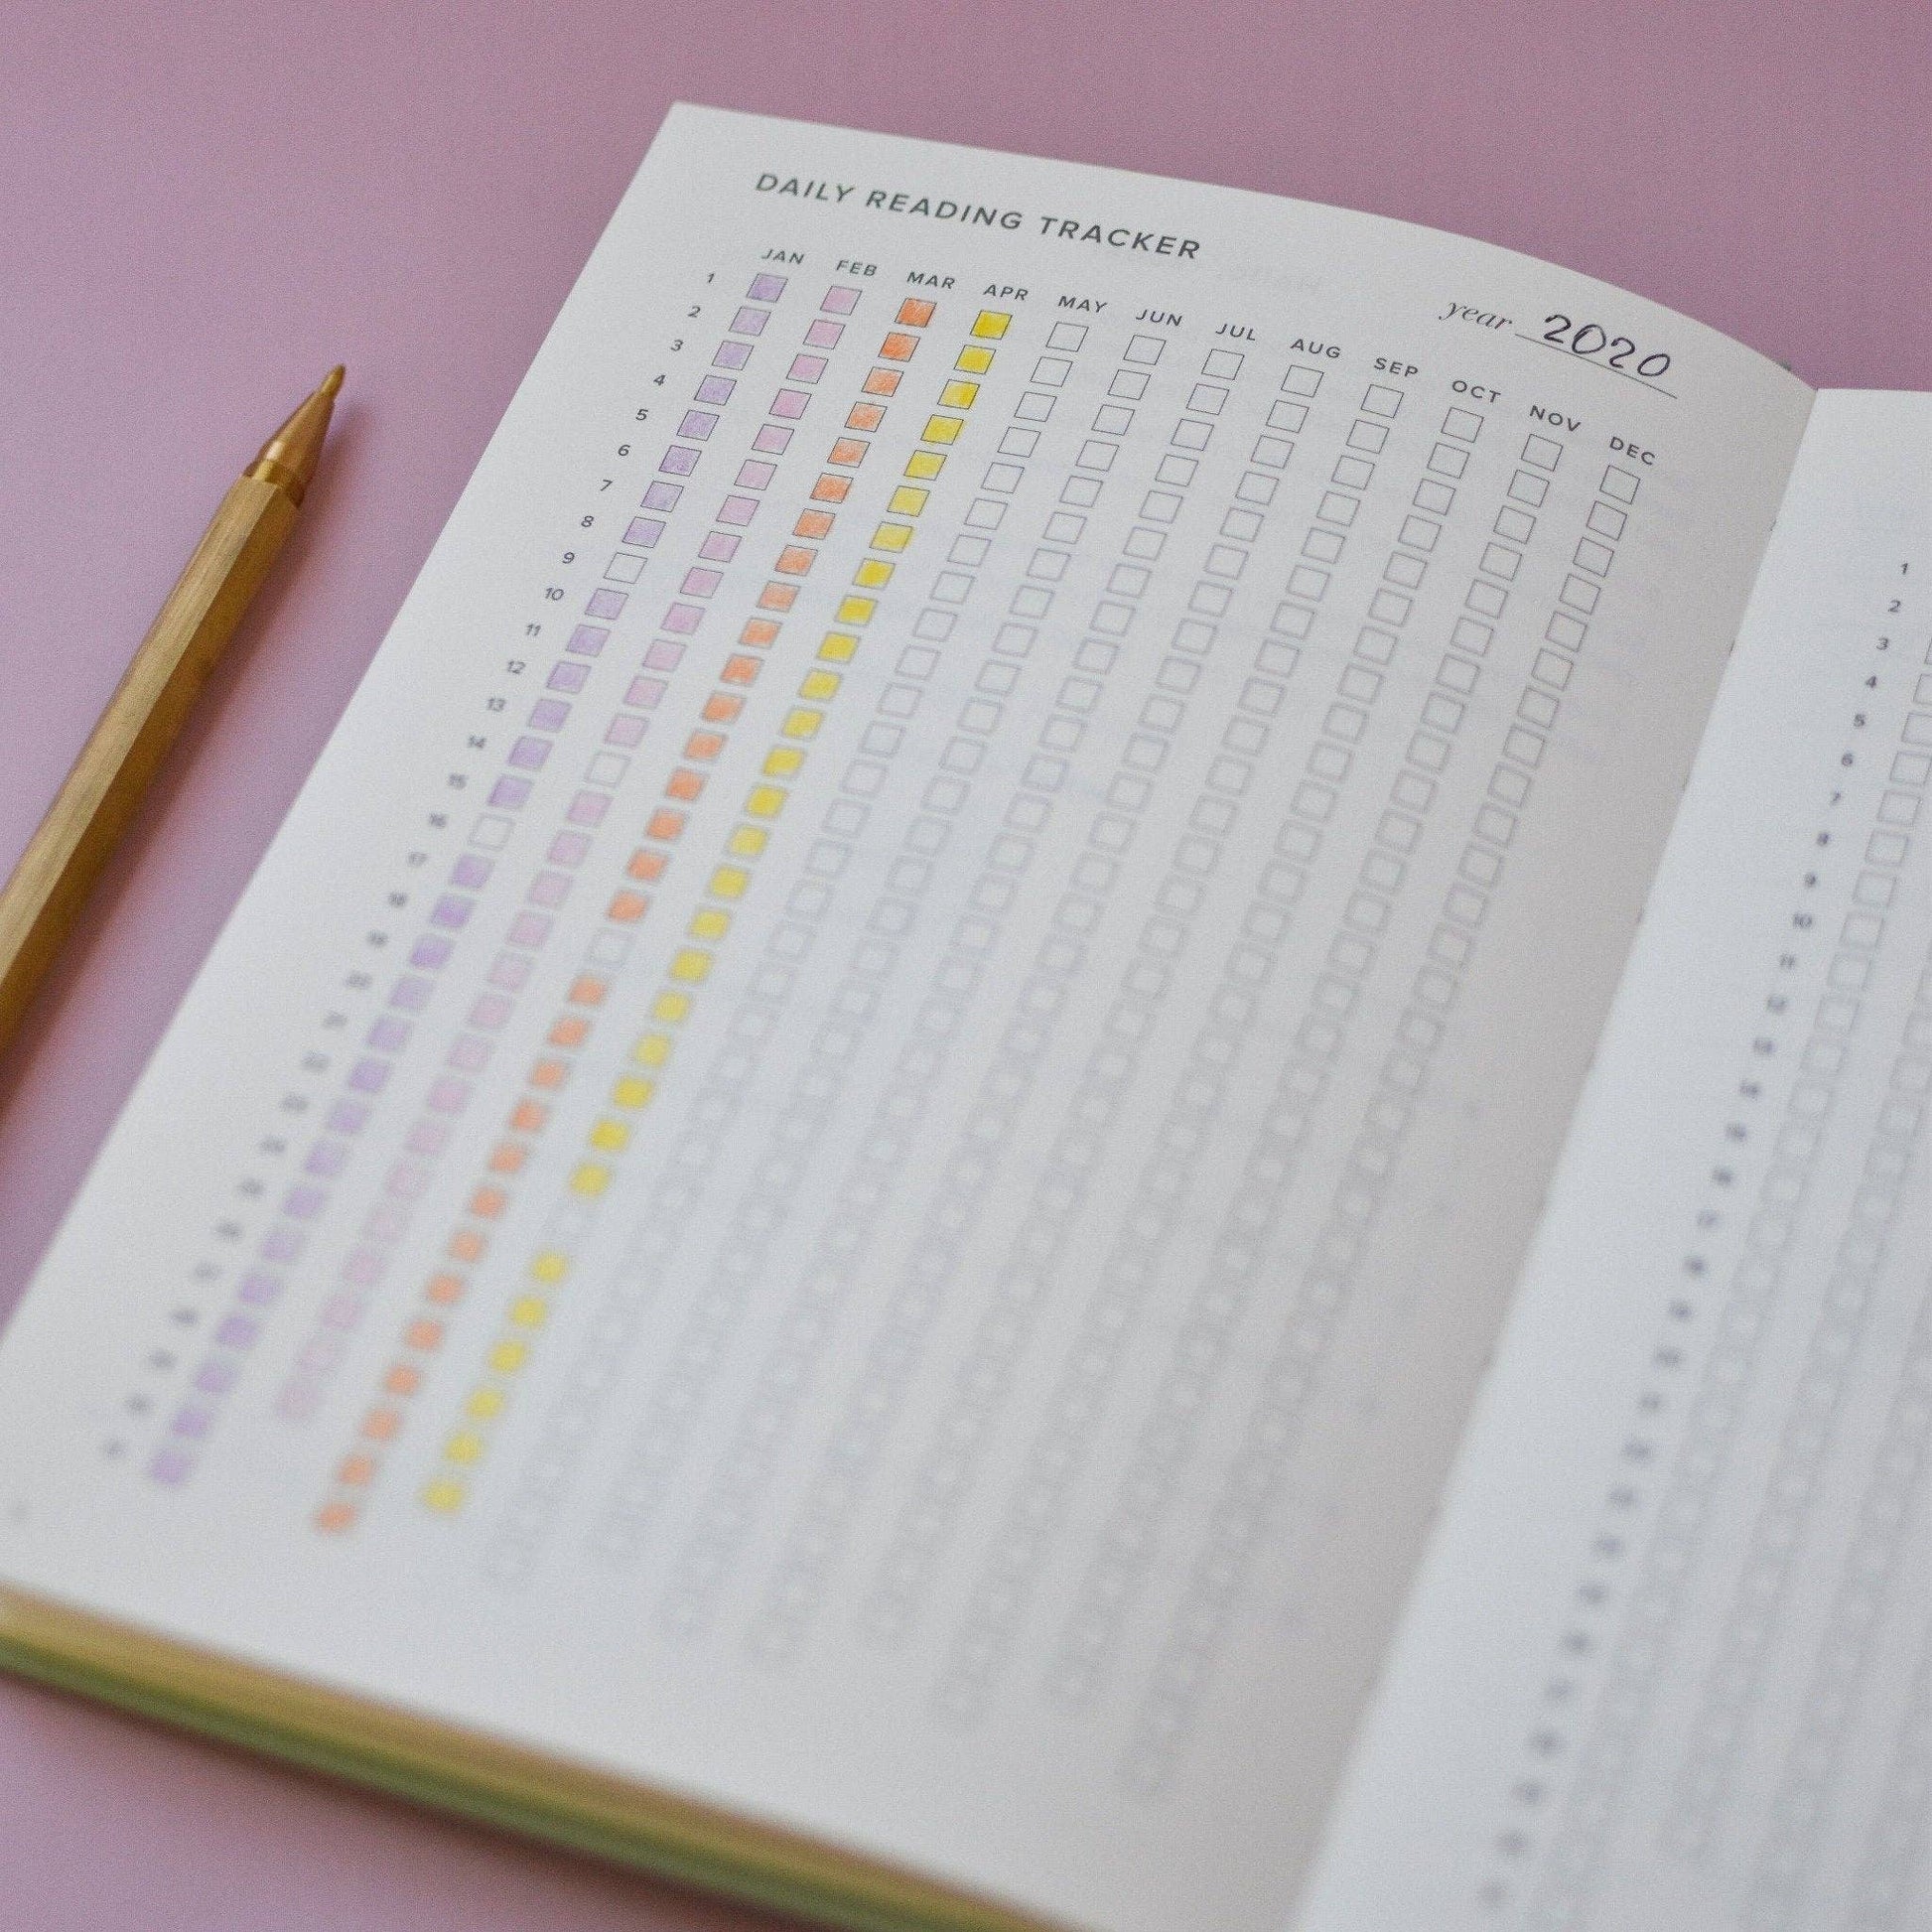 DAILY READING TRACKER
year 2020
JAN FEB MAR APR MAY JUN JUL AUG SEP OCT NOV DEC
1
2
3
4
5
6
7
8
9
10
11
12
13
14
15
16
17
18
19
20
1
2
3
4
5
6
7
8
9
10
11
12
13
14